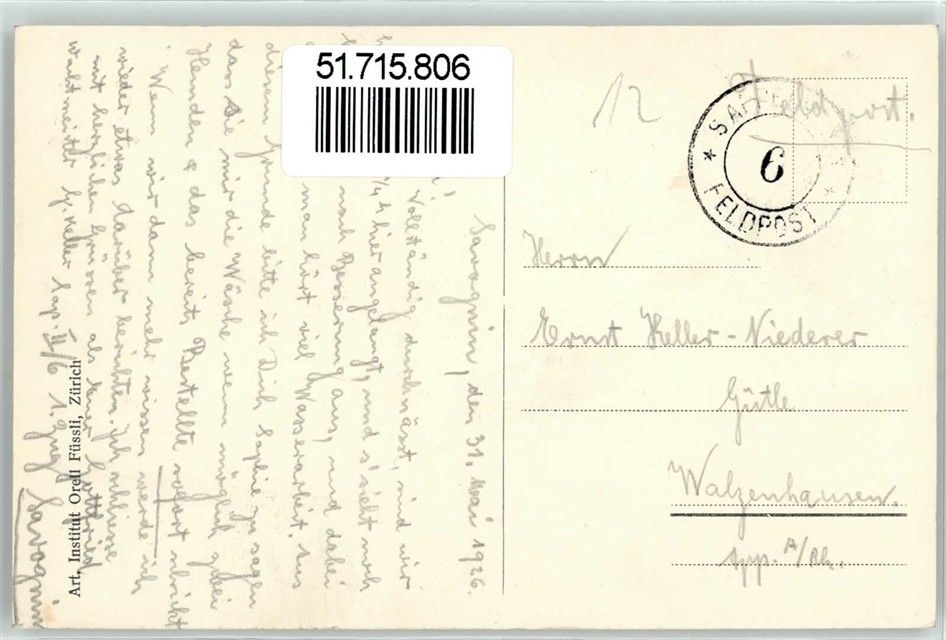 51.715.806
12
Feldpost.
* SAP
6
FELDPOST
Herrn
Ernst Keller-Niederer
Gütle
Walzenhausen.
App. A/Rh.
Savognin, den 31. Mai 1926.
Vollständig durchnässt, sind wir
hier angelangt, und s'sieht noch
nach Besserung aus, und dabei
man hört viel Wasserarbeit. Aus
diesem Grunde bitte ich Dich Sophie zu sagen
dass sie mir die Wäsche wenn möglich zwei
Hemden & das bereits Bestellte sofort schickt
Wenn wir dann mehr wissen werde ich
wieder etwas darüber berichten. Ich schliesse
mit herzlichen Grüssen als Euer Gottfried
Wachtmeister G. Keller Sap. II/6 1. Zug Savognin
Art. Institut Orell Füssli, Zürich